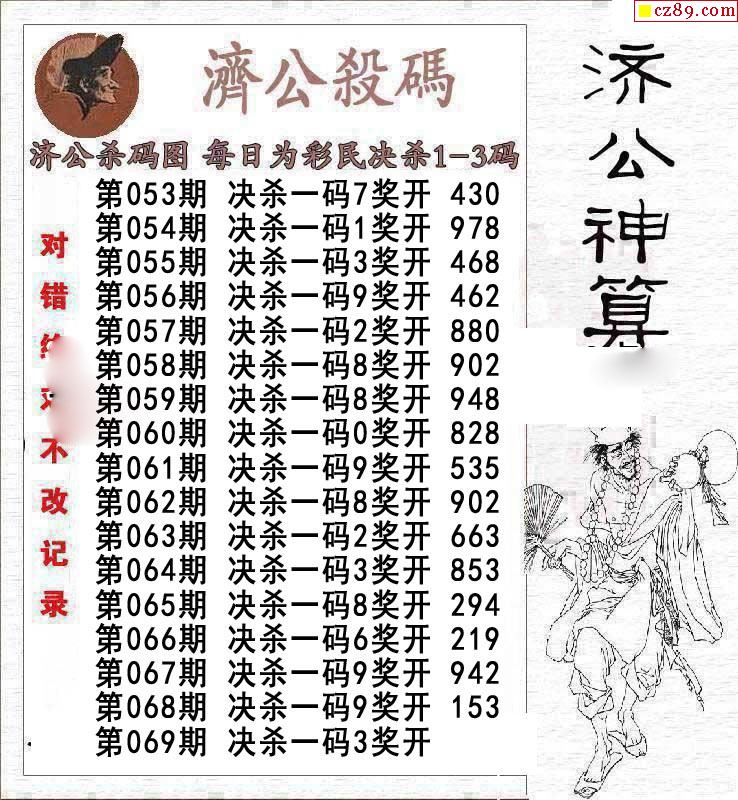 cz89.com
濟公殺碼
济公杀码图 每日为彩民决杀1-3码
第053期 决杀一码7奖开 430
第054期 决杀一码1奖开 978
第055期 决杀一码3奖开 468
第056期 决杀一码9奖开 462
第057期 决杀一码2奖开 880
第058期 决杀一码8奖开 902
第059期 决杀一码8奖开 948
第060期 决杀一码0奖开 828
第061期 决杀一码9奖开 535
第062期 决杀一码8奖开 902
第063期 决杀一码2奖开 663
第064期 决杀一码3奖开 853
第065期 决杀一码8奖开 294
第066期 决杀一码6奖开 219
第067期 决杀一码9奖开 942
第068期 决杀一码9奖开 153
第069期 决杀一码3奖开
对错不改记录
济公神算